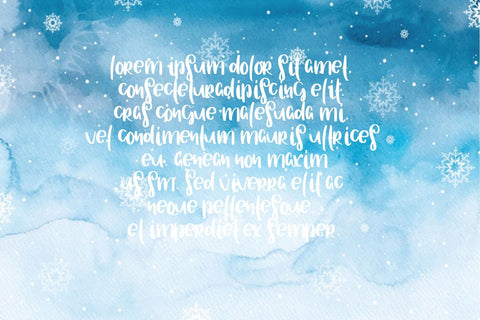 lorem ipsum dolor sit amet.
consecteturadipiscing elit.
cras congue malesuada mi.
vel condimentum mauris ultrices
eu. aenean non maxim
us smt. sed viverra elit ac
neque pellentesque.
et imperdiet ex semper